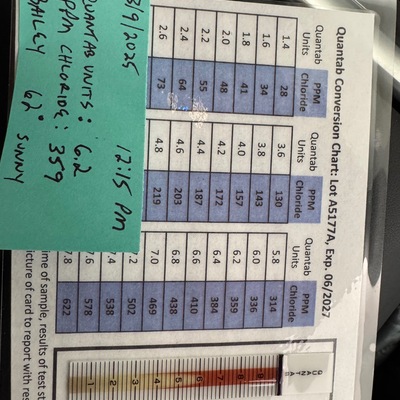 Quantab Conversion Chart: Lot A5177A, Exp. 06/2027
Quantab Units PPM Chloride Quantab Units PPM Chloride Quantab Units PPM Chloride
1.4 28 3.6 130 5.8 314
1.6 34 3.8 143 6.0 336
1.8 41 4.0 157 6.2 359
2.0 48 4.2 172 6.4 384
2.2 55 4.4 187 6.6 410
2.4 64 4.6 203 6.8 438
2.6 73 4.8 219 7.0 469
.2 502
.4 538
7.6 578
.8 622
/9/2025 12:15 PM
QUANTAB UNITS: 6.2
PPM CHLORIDE: 359
BAILEY 62° SUNNY
ime of sample, results of test st
icture of card to report with res